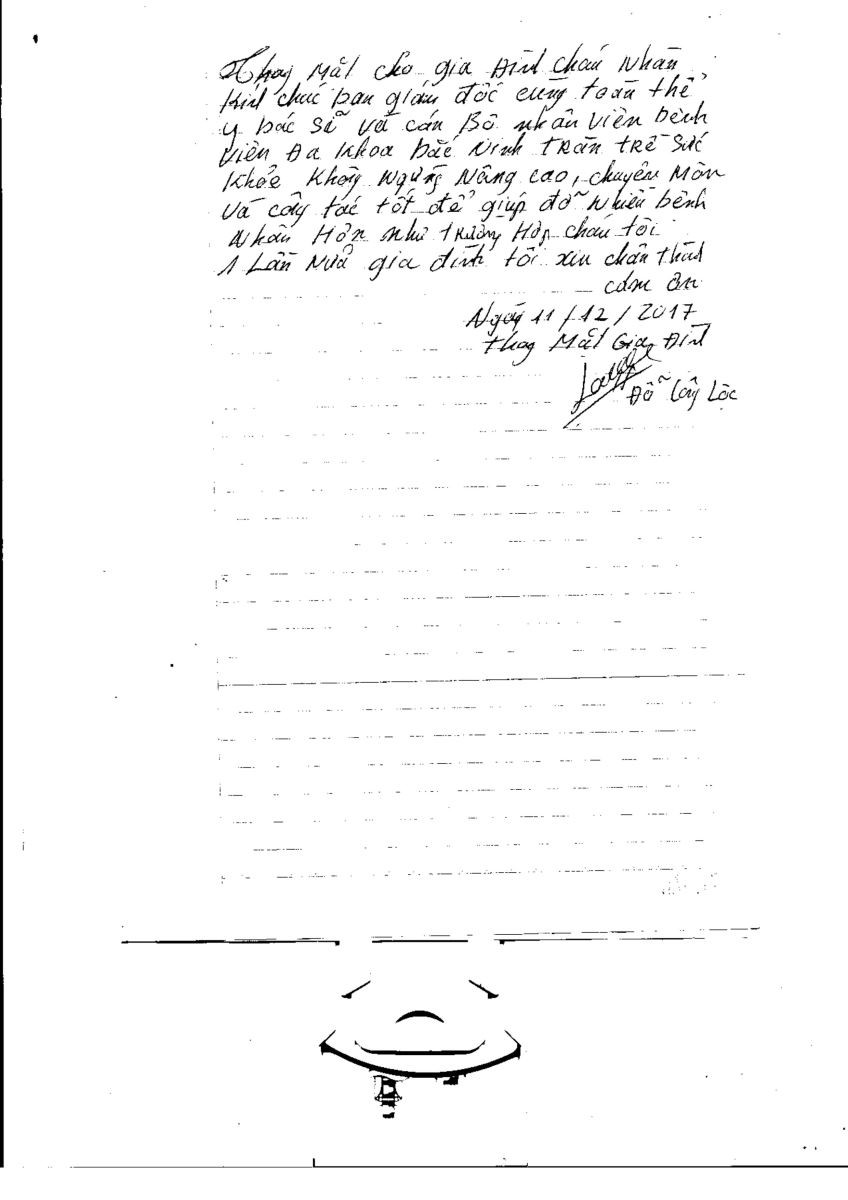 Thay mặt cho gia đình cháu Nhàn
kính chúc ban giám đốc cùng toàn thể
y bác sĩ và cán Bộ nhân viên bệnh
viện Đa khoa bắc Ninh TRàn TRề Sức
khỏe không Ngừng Nâng cao, chuyên Môn
và công tác tốt để giúp đỡ nhiều bệnh
Nhân Hơn như TRường Hợp cháu tôi
1 Lần Nữa gia đình tôi xin chân thành
cảm ơn
Ngày 11/12/2017
Thay Mặt Gia Đình
Đỗ Công Lộc